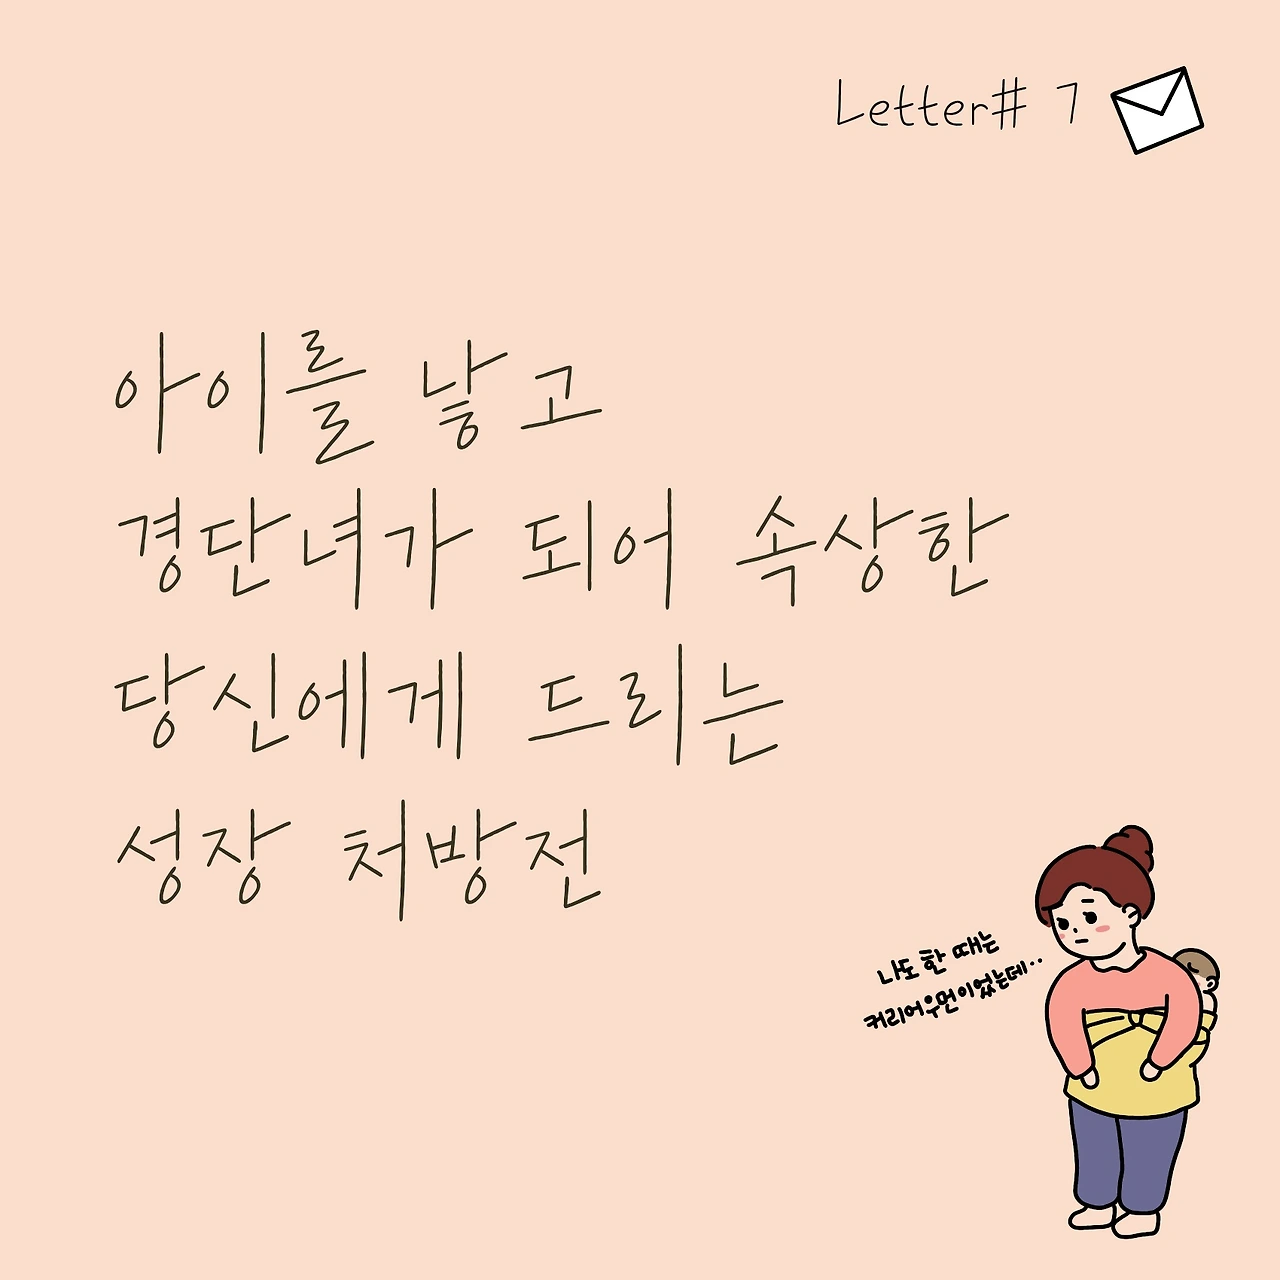 Letter# 7
아이를 낳고
경단녀가 되어 속상한
당신에게 드리는
성장 처방전
나도 한 때는
커리어우먼이었는데..